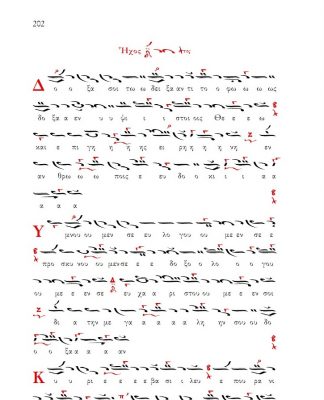 202
Ἦχος
Δ ο ο ξα σοι τω ω δει ξα αν τι το ο φω ω ω ως
δο ξα α εν υ υ ψι ι ι στοι οις Θε ε ε ω
και ε πι γη η η ης ει ρη η η η νη εν
αν θρω ω ω ποις ε ευ δο ο κι ι α α
α α α
Υ μνου ου μεν σε ευ λο γου ου με εν σε ε
προ σκυ νου ου μεν σε ε ε δο ξο λο ο ο γου
ου με ε εν σε ευ χα α ρι στου ου με ε εν σοι
δι α την με γα α α α λη ην σου ου δο
ο ο ξα α α α αν
Κ υ υ ρι ε ε ε ε βα σι ι λευ ε που ρα νι